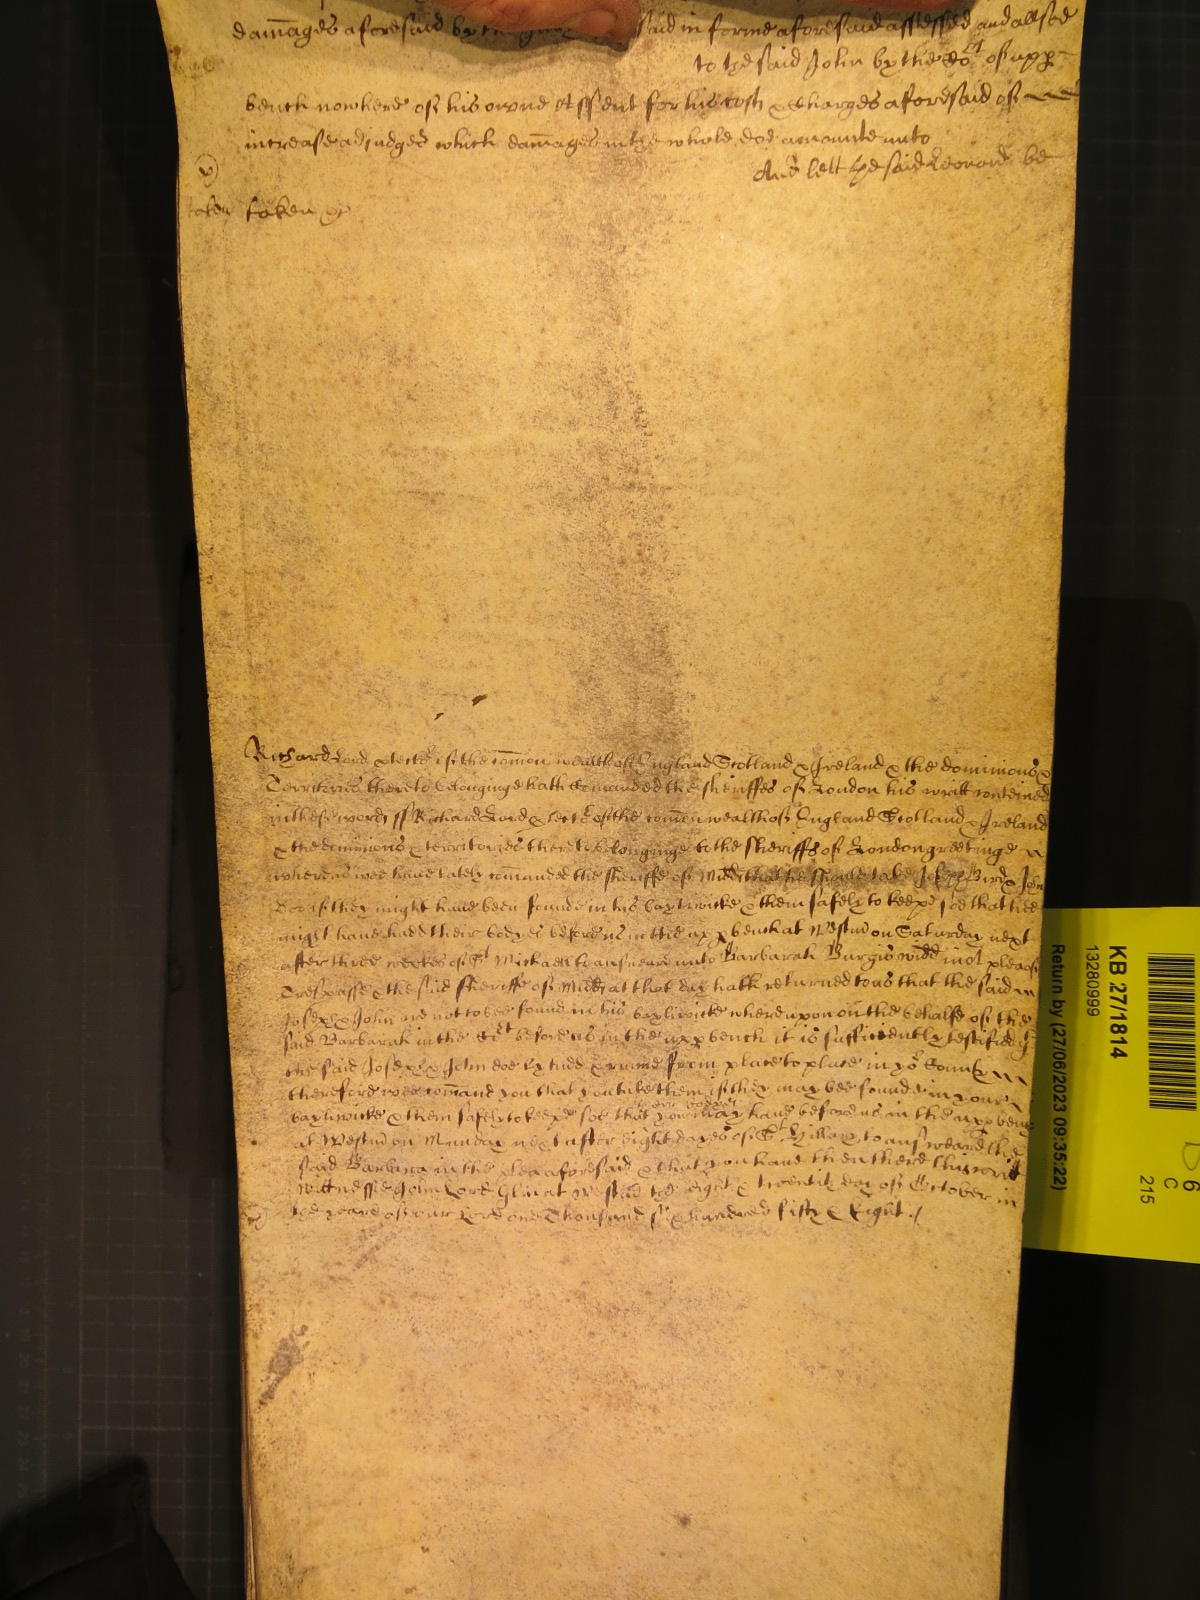 damages aforesaid by the said in forme aforesaid assessed and alsoe
to the said John by the Co:rt of upp
bench nowhere of his owne Assent for his costs & charges aforesaid of
increase adjudged which damages in the whole doe amounte unto
And lett the said Leonard be
taken taken &c
Richard Lord Protector of the comon wealth of England Scotland & Ireland & the dominions &
Territories thereto belonginge hath comanded the sheriffes of London his writt conteined
in these words ss Richard Lord Protector of the comonwealth of England Scotland & Ireland
& the dominions & territories thereto belonginge to the sheriffs of London greetinge
whereas wee have lately comanded the sheriffe of Midd that he should take Joseph & John
if they might have been founde in his bayliwicke & them safely to keepe soe that hee
might have had their bodyes before us in the upp bench at Westm on Saturday next
after three weekes of St Michaell to answeare unto Barbarah Burgis widd in a plea of
Trespasse & the said sheriffe of Midd at that day hath returned to us that the said
Joseph & John are not to bee found in his bayliwicke whereupon on the behalfe of the
said Barbarah in the Crt before us in the upp bench it is sufficiently testified yt
the said Joseph & John doe lye hidd & runne from place to place in yor County
therefore wee comand you that you take them if they may bee founde in your
bayliwicke & them safely to keepe soe that you may have their bodyes before us in the upp bench
at Westm on Munday next after eight dayes of St Hillary to answeare the
said Barbara in the plea aforesaid & that you have then there this writt
wittnesse John Lord Glin at Westm the eight & twentith day of October in
the yeare of our Lord one Thousand six hundred fifty & Eight
KB 27/1814
13280999
Return by (27/06/2023 09:35:22)
6
C
215